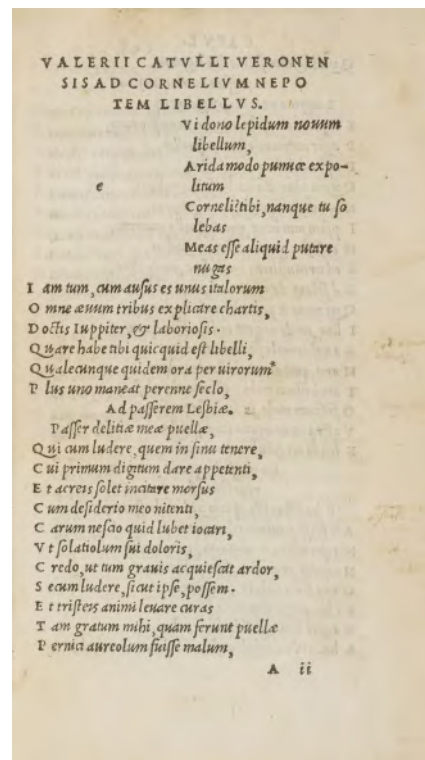 VALERII CATVLLI VERONEN
SIS AD CORNELIVM NEPO
TEM LIBELLVS.
Vi dono lepidum nouum
libellum,
Arida modo pumice expo-
e litum
Corneli?tibi, nanque tu so
lebas
Meas esse aliquid putare
nugas
I am tum, cum ausus es unus italorum
O mne æuum tribus explicare chartis,
D octis Iuppiter, & laboriosis.
Q uare habe tibi quicquid est libelli,
Q ualecunque quidem ora per uirorum
P lus uno maneat perenne seclo,
Ad passerem Lesbiæ. 2
Passer delitiæ meæ puellæ,
Q ui cum ludere, quem in sinu tenere,
C ui primum digitum dare appetenti,
E t acreis solet incitare morsus
C um desiderio meo nitenti,
C arum nescio quid lubet iocari,
V t solatiolum sui doloris,
C redo, ut tum grauis acquiescat ardor,
S ecum ludere, sicut ipse, possem.
E t tristeis animi leuare curas
T am gratum mihi, quam ferunt puellæ
P ernici aureolum fuisse malum,
A ii